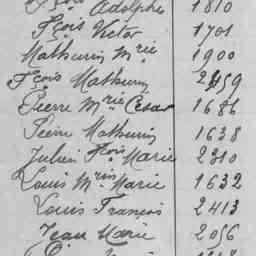 Fçois Adolphe 1810
Fçois Victor 1701
Mathurin Mrie 1900
Fçois Mathurin 2459
Pierre Mrie César 1686
Pierre Mathurin 1638
Julien Fçois Marie 2310
Louis Mrin Marie 1632
Louis François 2413
Jean Marie 2056